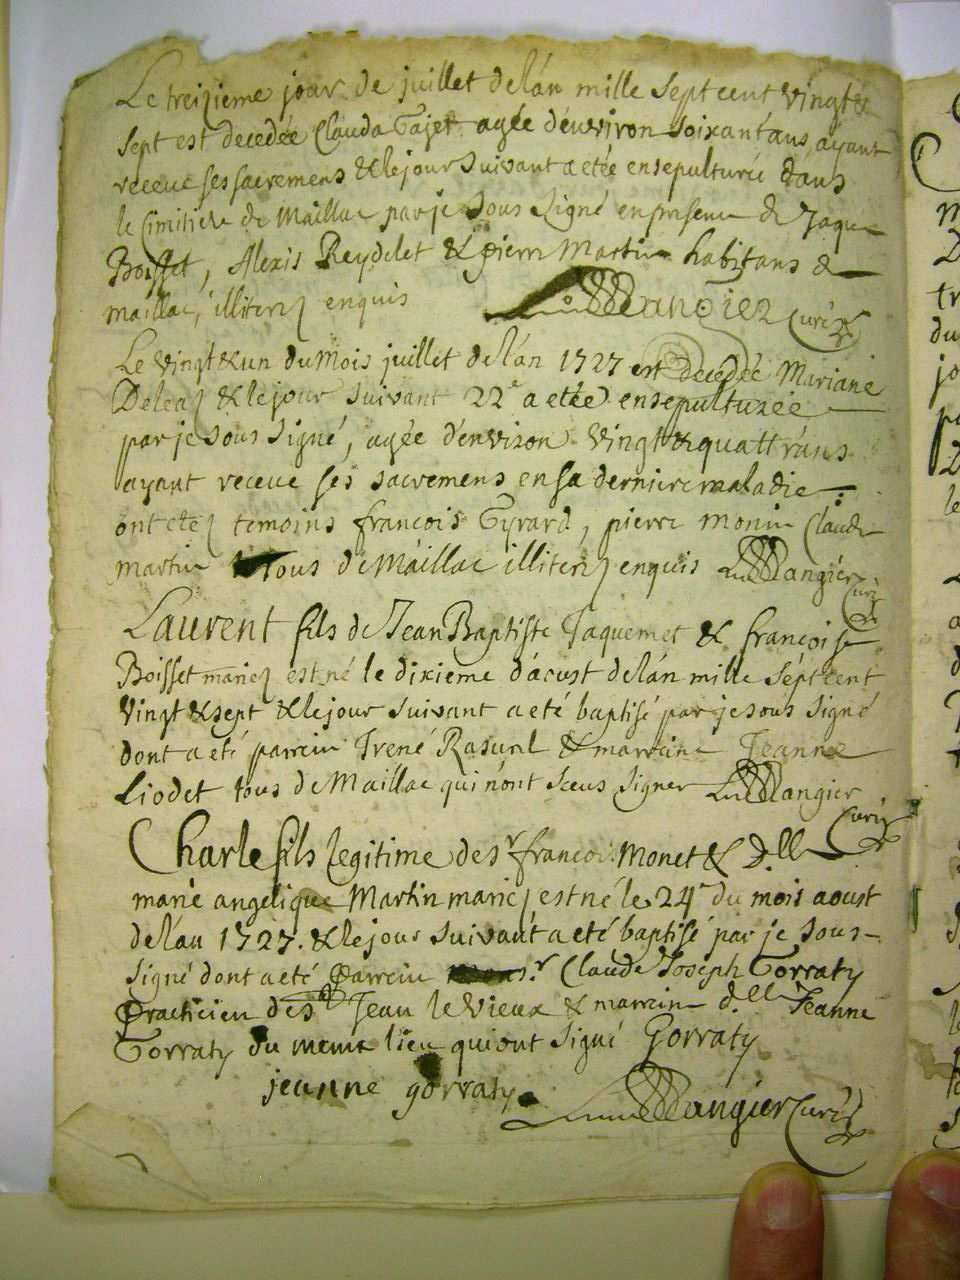 Le treizieme jour de juillet de lán mille sept cent vingt &
sept est decedée Clauda Gajet agée dénviron soixant ans ayant
receue ses sacremens & le jour suivant a etée ensepulturée dans
le Cimitiere de Maillac par je sous signé en presence de Jaque
Boisset, Alexis Reydelet & pierre Martin habitans de
maillac, illiterez enquis Mangier Curé
Le vingt & un du Mois juillet de lán 1727 est decedée Mariane
Deleaz & le jour suivant 22e a etée ensepulturée
par je sous signé, agée dénviron vingt & quattr áns
ayant receue ses sacremens en sa derniere maladie.
ont etez temoins françois Gyrard, pierre monin Claude
martin tous de Maillac illiterez enquis Mangier
Curé
Laurent fils de Jean Baptiste Jaquemet & françoise
Boisset mariez est né le dixieme dáoust de lán mille sept cent
vingt & sept & le jour suivant a eté baptisé par je sous signé
dont a eté parrein Irené & marraine Jeanne
Liodet tous de Maillac qui nónt sceus signer Mangier
Curé
Charle fils legitime de sr françois Monet & d.lle
marie angelique Martin mariez est né le 24e du mois aoust
de lán 1727. & le jour suivant a eté baptisé par je sous-
signé dont a eté parrein sr Claude Joseph Gorraty
practicien de st Jean le vieux & marreine d.lle Jeanne
Gorraty du meme lieu qui ont signé Gorraty
jeanne gorraty Mangier Curé